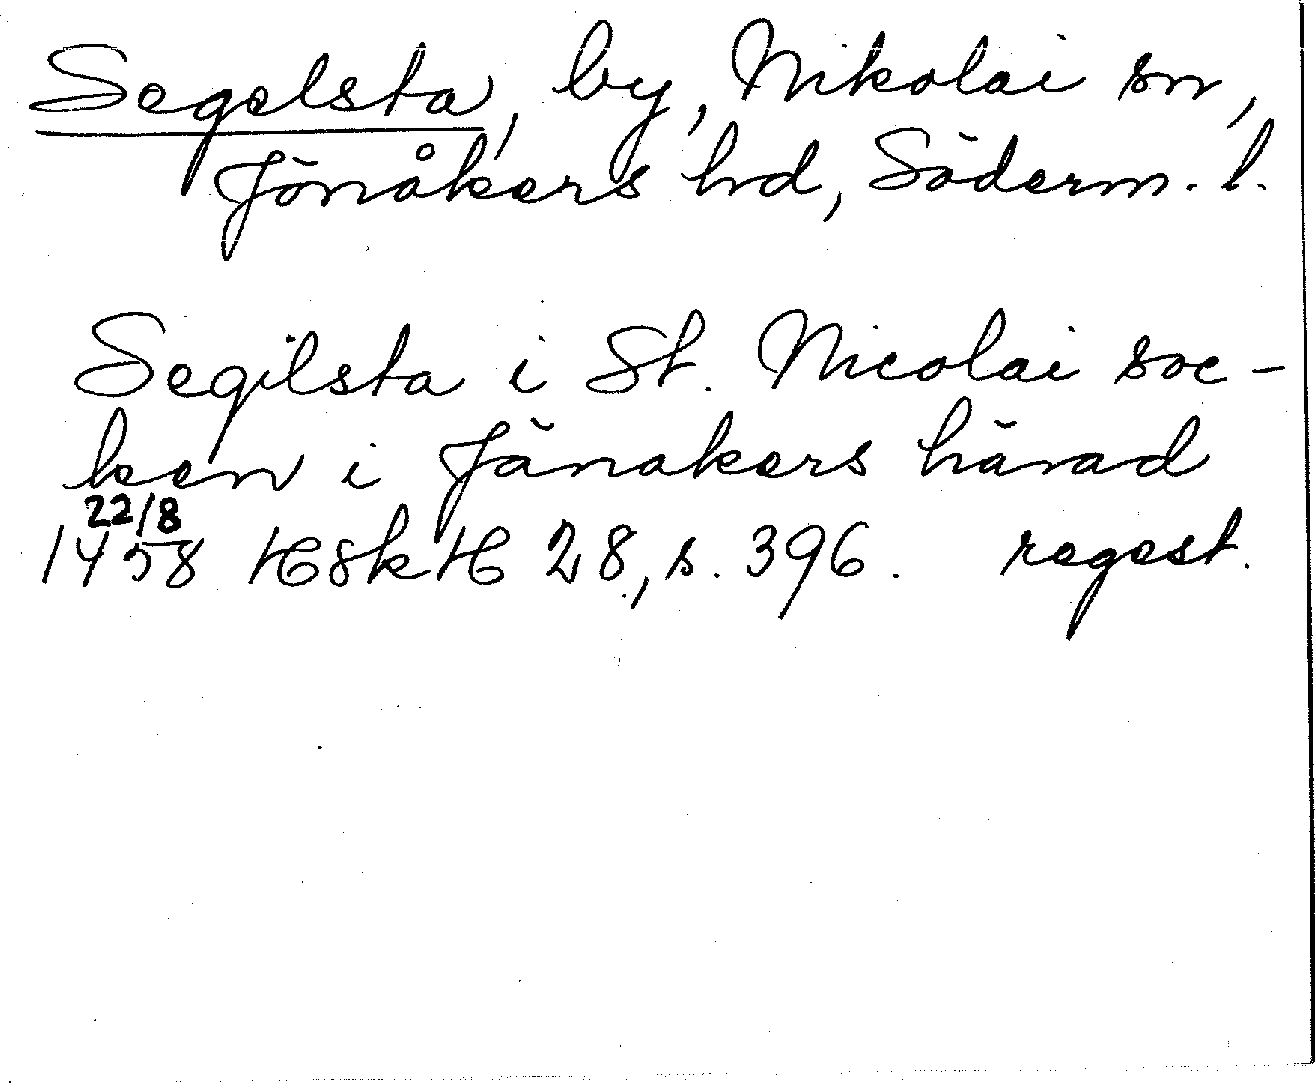 Segelsta, by, Nikolai sn,
Jönåkers hd, Söderm. l.
Segilsta i St. Nicolai soc-
ken i Jänakers härad
22/8
1458 HSkH 28, s. 396. regest.